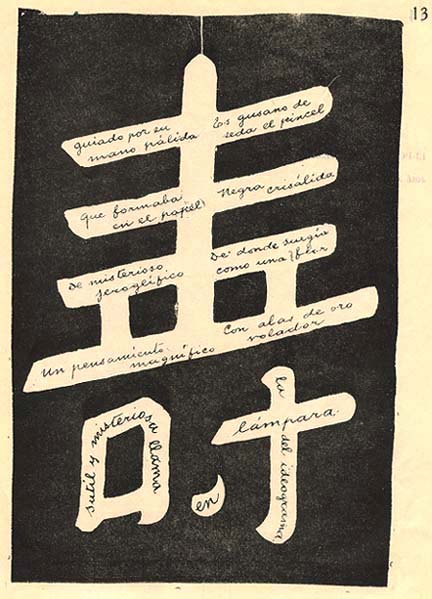 13
guiado por su
mano pálida
Es gusano de
seda el pincel
Que formaba
en el papel
Negra crisálida
De misterioso
jeroglífico
De donde surgía
como una flor
Un pensamiento
magnífico
Con alas de oro
volador
sutil y misteriosa llama
en
la
lámpara
del ideograma